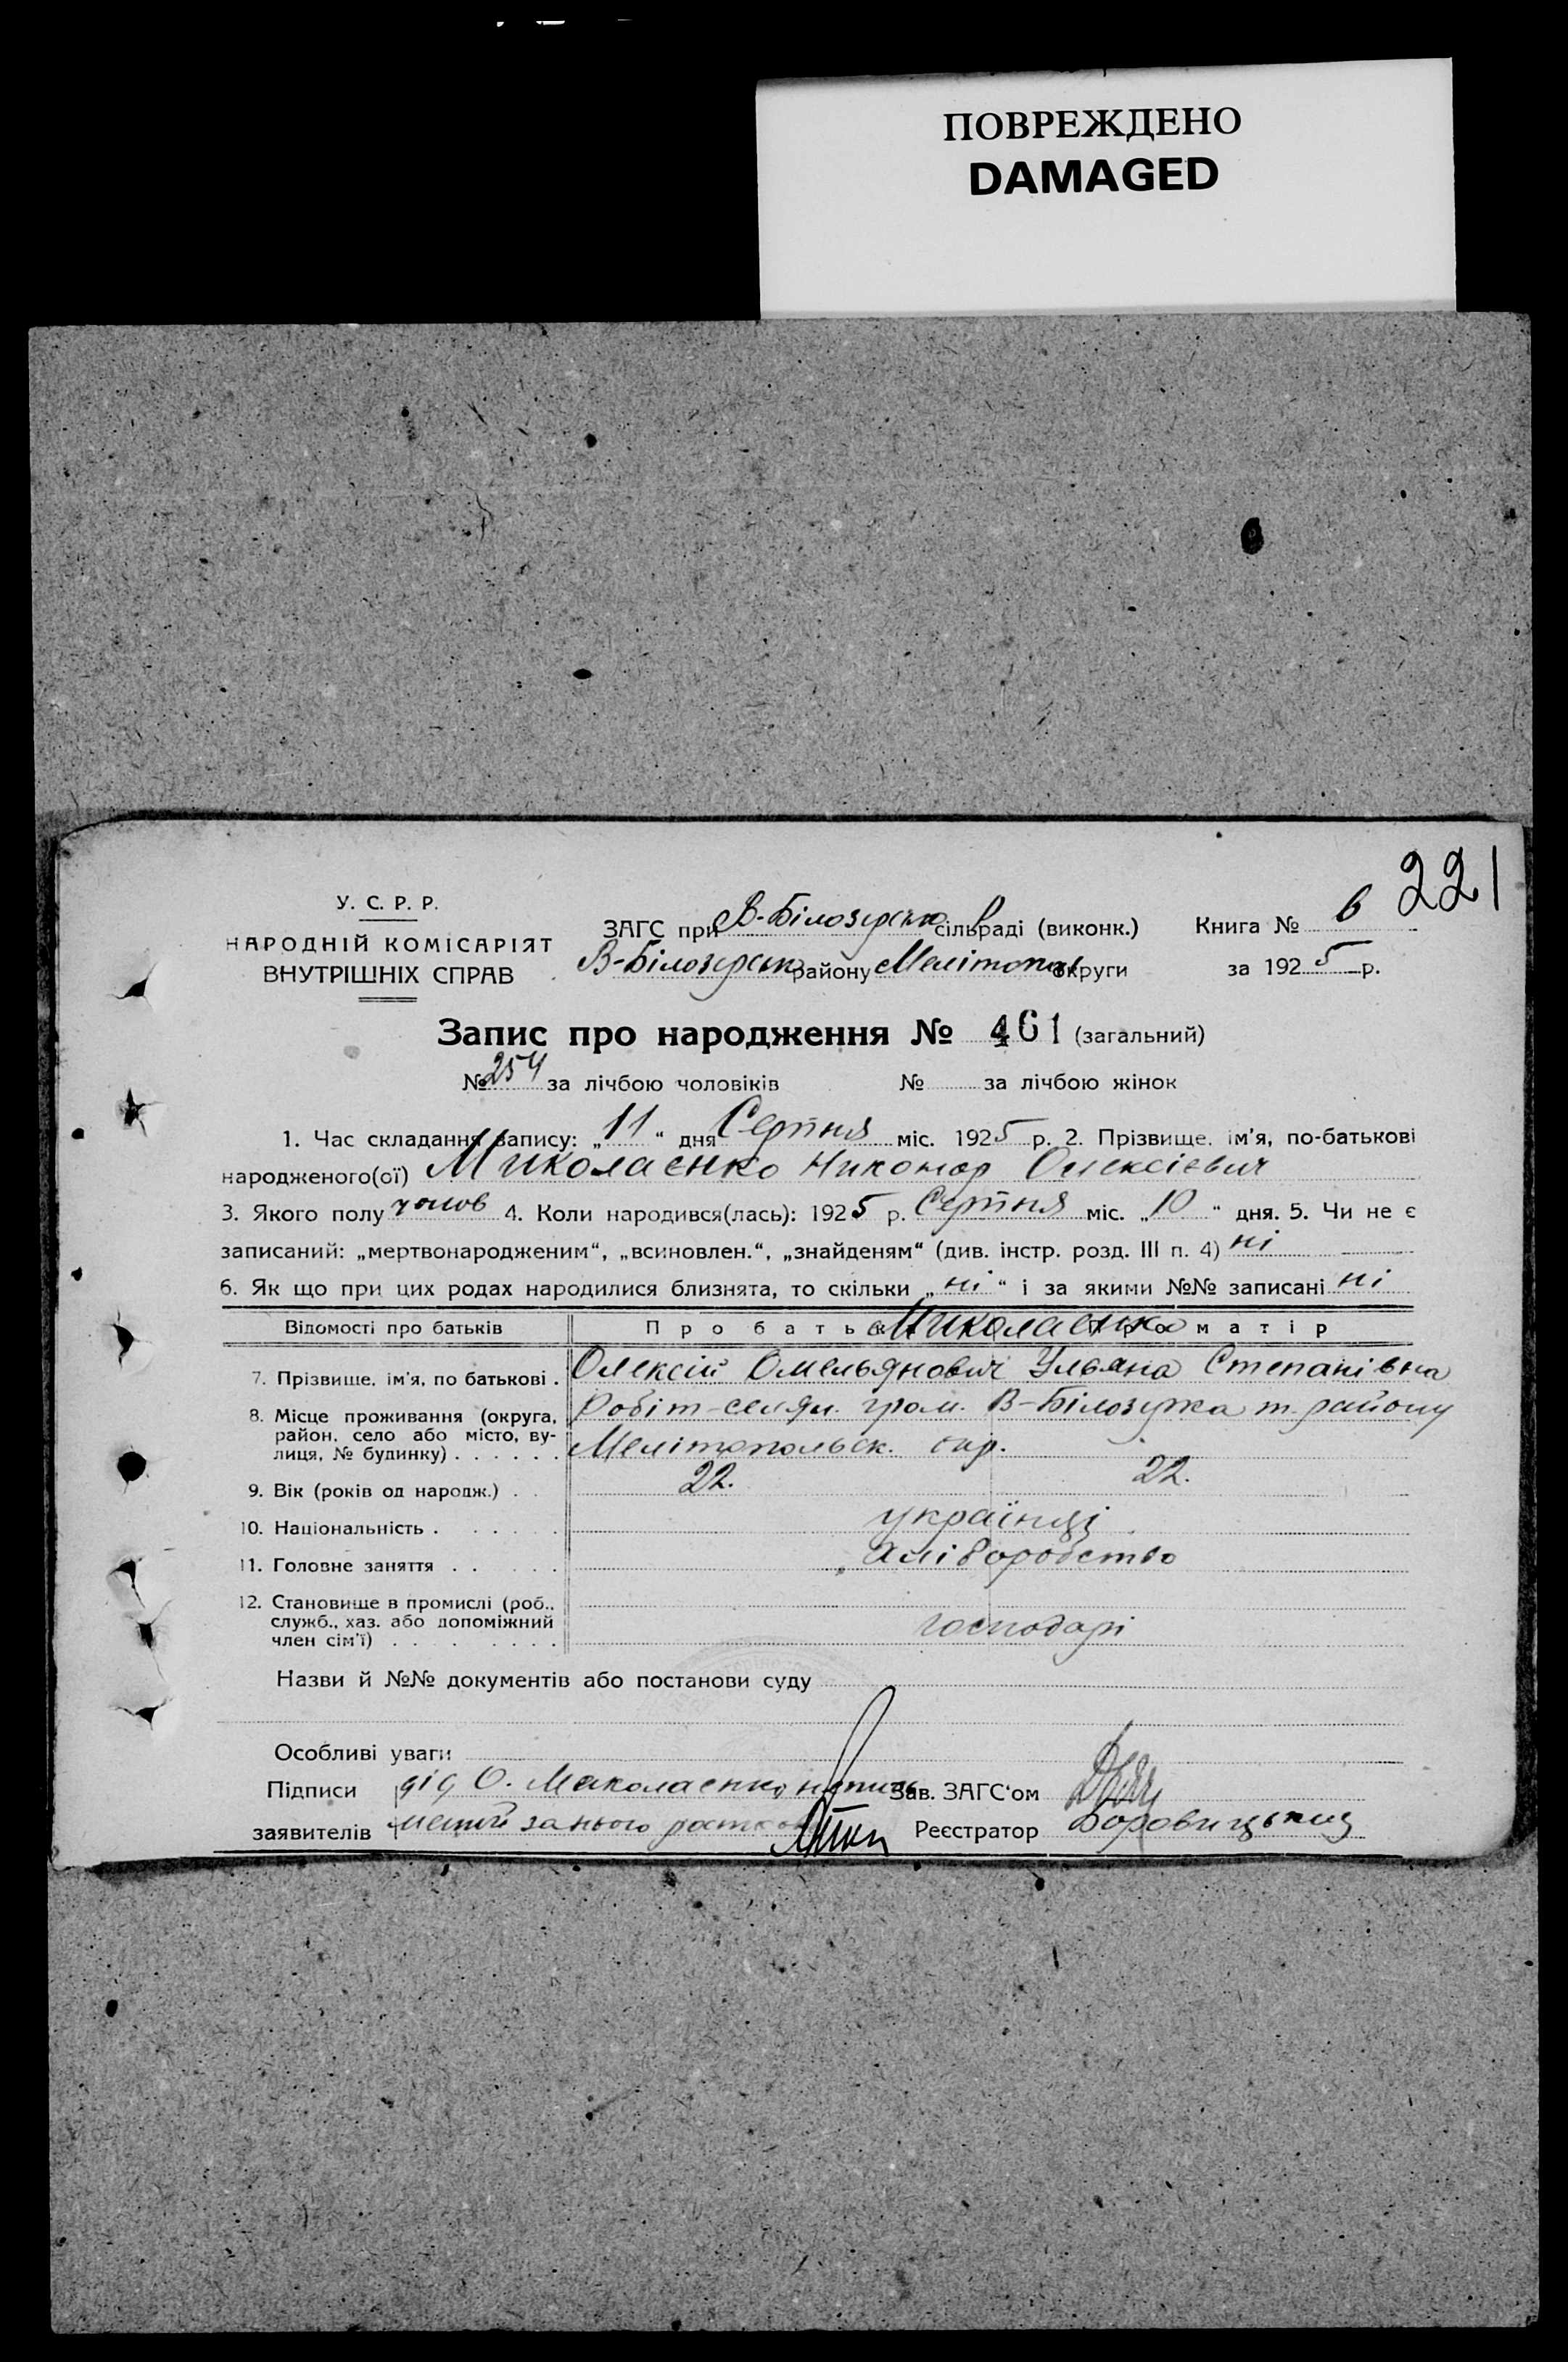 ПОВРЕЖДЕНО
DAMAGED
221
У. С. Р. Р.
НАРОДНІЙ КОМІСАРІЯТ
ВНУТРІШНІХ СПРАВ
ЗАГС при В-Білозерськ сільраді (виконк.)
В-Білозерськ району Мелітопольс округи
Книга № 6
за 1925 р.
Запис про народження № 461 (загальний)
№ 254 за лічбою чоловіків № за лічбою жінок
1. Час складання запису: „11“ дня Серпня міс. 1925 р. 2. Прізвище, ім'я, по-батькові
народженого(ої) Миколаєнко Никонор Олексієвич
3. Якого полу чолов 4. Коли народився(лась): 1925 р. Серпня міс. „10“ дня. 5. Чи не є
записаний: „мертвонародженим“, „всиновлен.“, „знайденям“ (див. інстр. розд. III п. 4) ні
6. Як що при цих родах народилися близнята, то скільки „ні“ і за якими №№ записані ні
Відомості про батьків Про батька Про матір
Миколаєнко
7. Прізвище, ім'я, по батькові . Олексій Омельянович Ульяна Степанівна
8. Місце проживання (округа, район, село або місто, вулиця, № будинку) . . . . . . Робіт-селян. гром. В-Білозерка т. району
Мелітопольськ. окр.
9. Вік (років од народж.) . . 22. 22.
10. Національність . . . . . українці
11. Головне заняття . . . . . хліборобство
12. Становище в промислі (роб., служб., хаз. або допоміжний член сім'ї) . . . . . . . . господарі
Назви й №№ документів або постанови суду
Особливі уваги
Підписи дід О. Миколаєнко Зав. ЗАГС'ом
заявителів за нього Реєстратор Боровицький